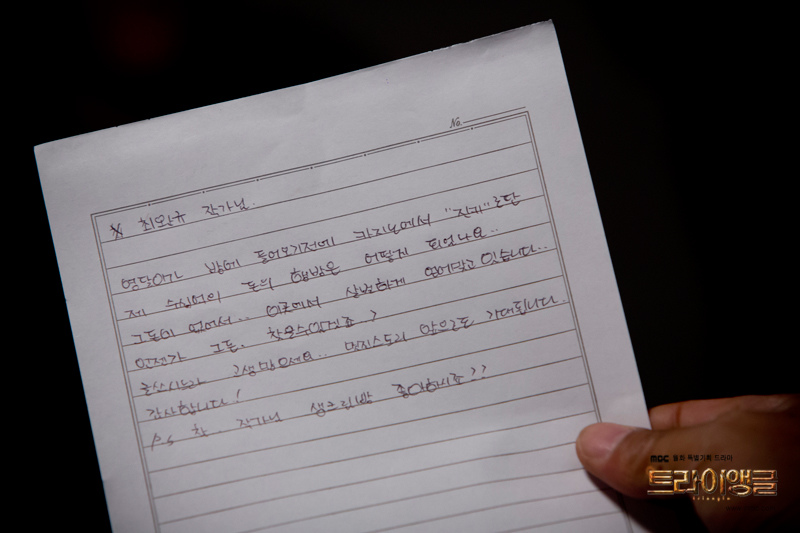 No.
※ 최완규 작가님.
영달이가 방에 들어오기전에 카지노에서 "진귀"로딴
제 수십억의 돈의 행방은 어떻게 되었나요..
그돈이 없어서.. 이곳에서 살벌하게 얻어맞고 있습니다..
언젠가 그돈. 찾을수있겠죠?
글쓰시느라 고생많으세요.. 멋진스토리 앞으로도 기대됩니다.
감사합니다!
P.S 참 작가님 생크림빵 좋아하시죠??
MBC 월화 특별기획 드라마
트라이앵글
triangle